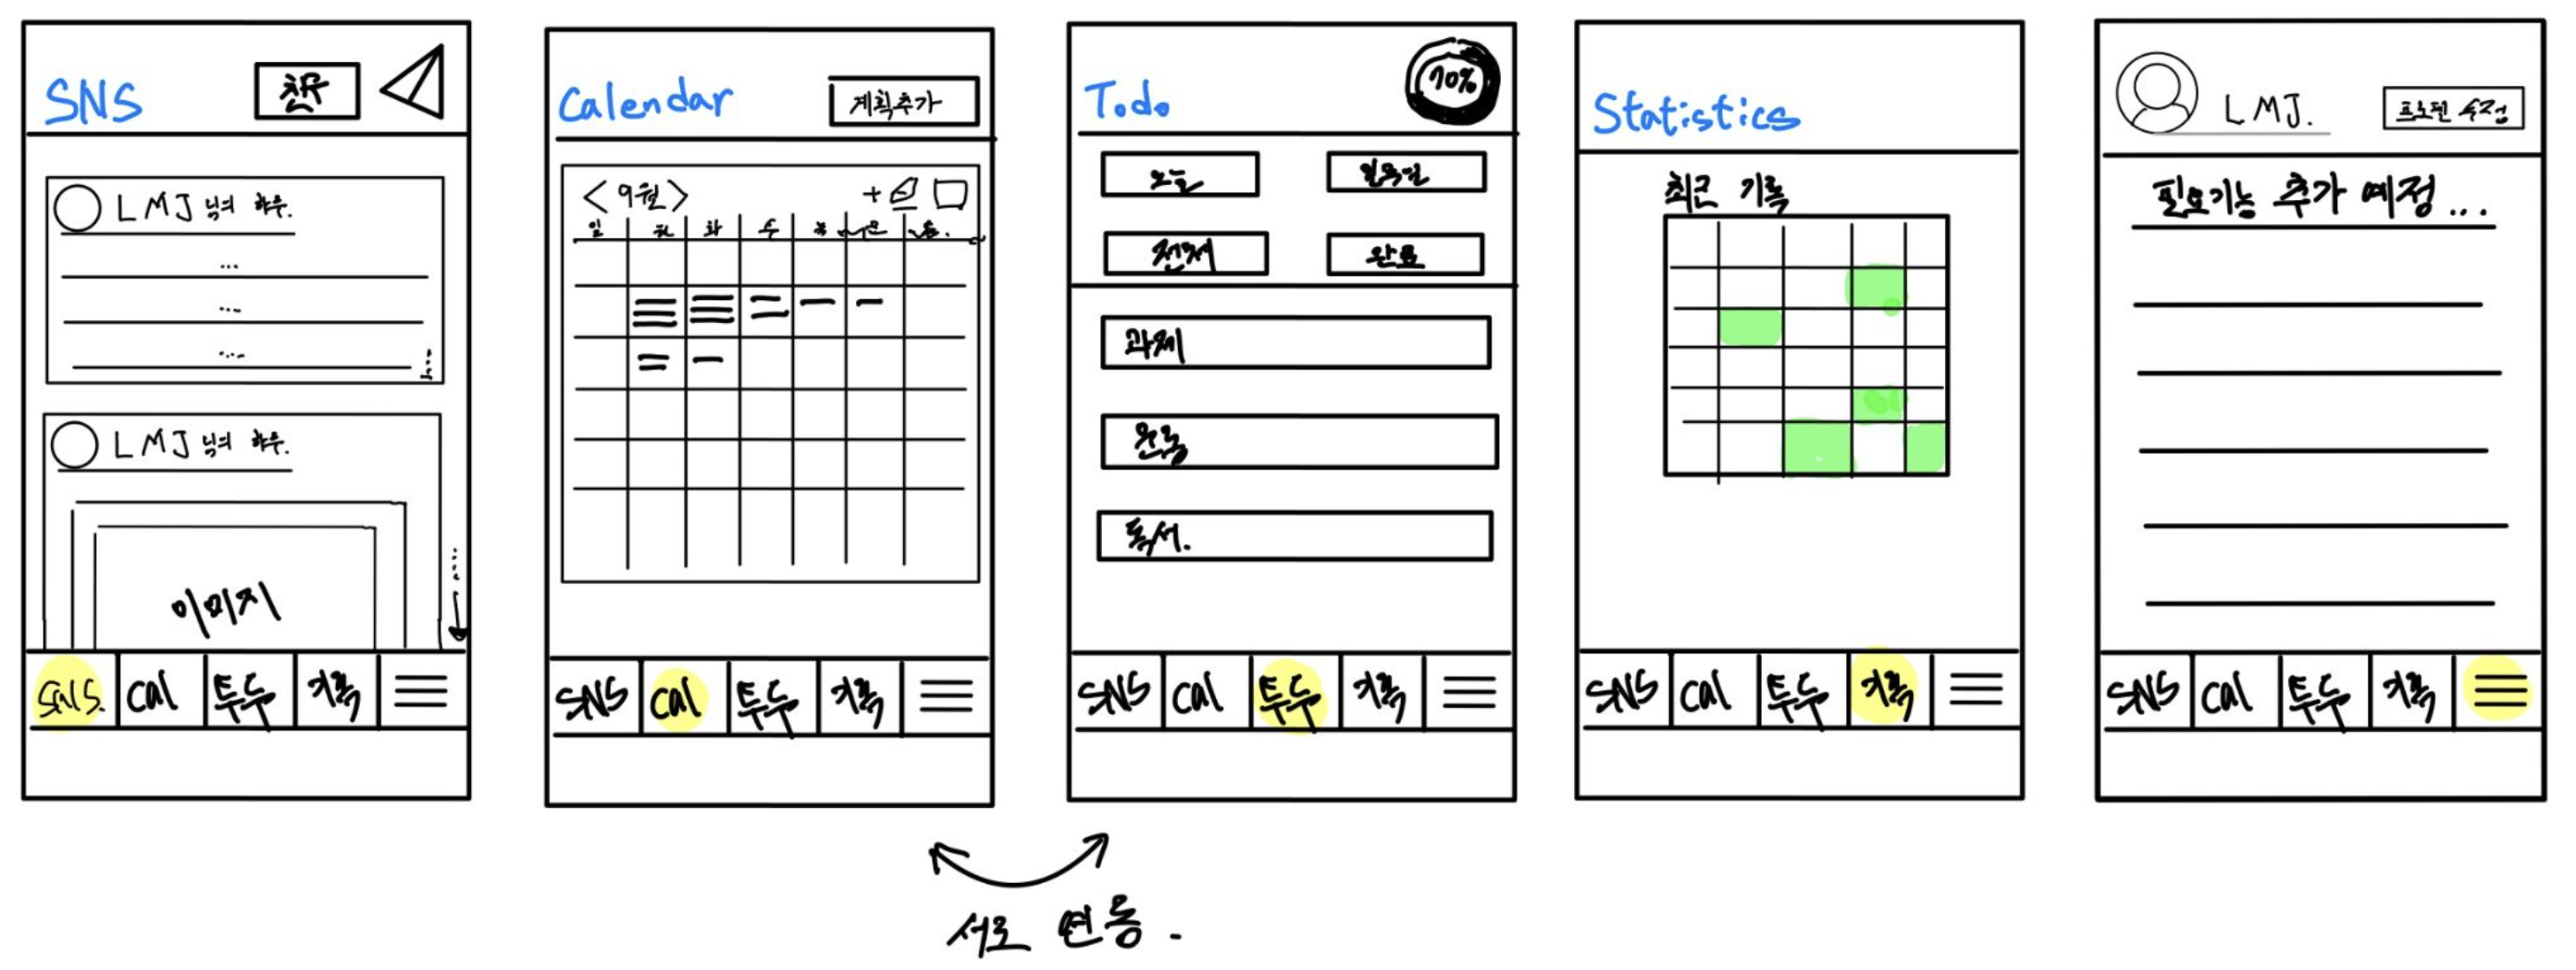 SNS
친구
LMJ 님의 하루.
...
...
...
LMJ 님의 하루.
이미지
SNS. Cal 투두 기록
Calendar
계획추가
< 9월 > +
일 월 화 수 목
SNS Cal 투두 기록
Todo
70%
오늘
전체 완료
과제
운동
독서.
SNS Cal 투두 기록
Statistics
최근 기록
SNS Cal 투두 기록
LMJ.
프로필 수정
필요기능 추가 예정...
SNS Cal 투두 기록
서로 연동.